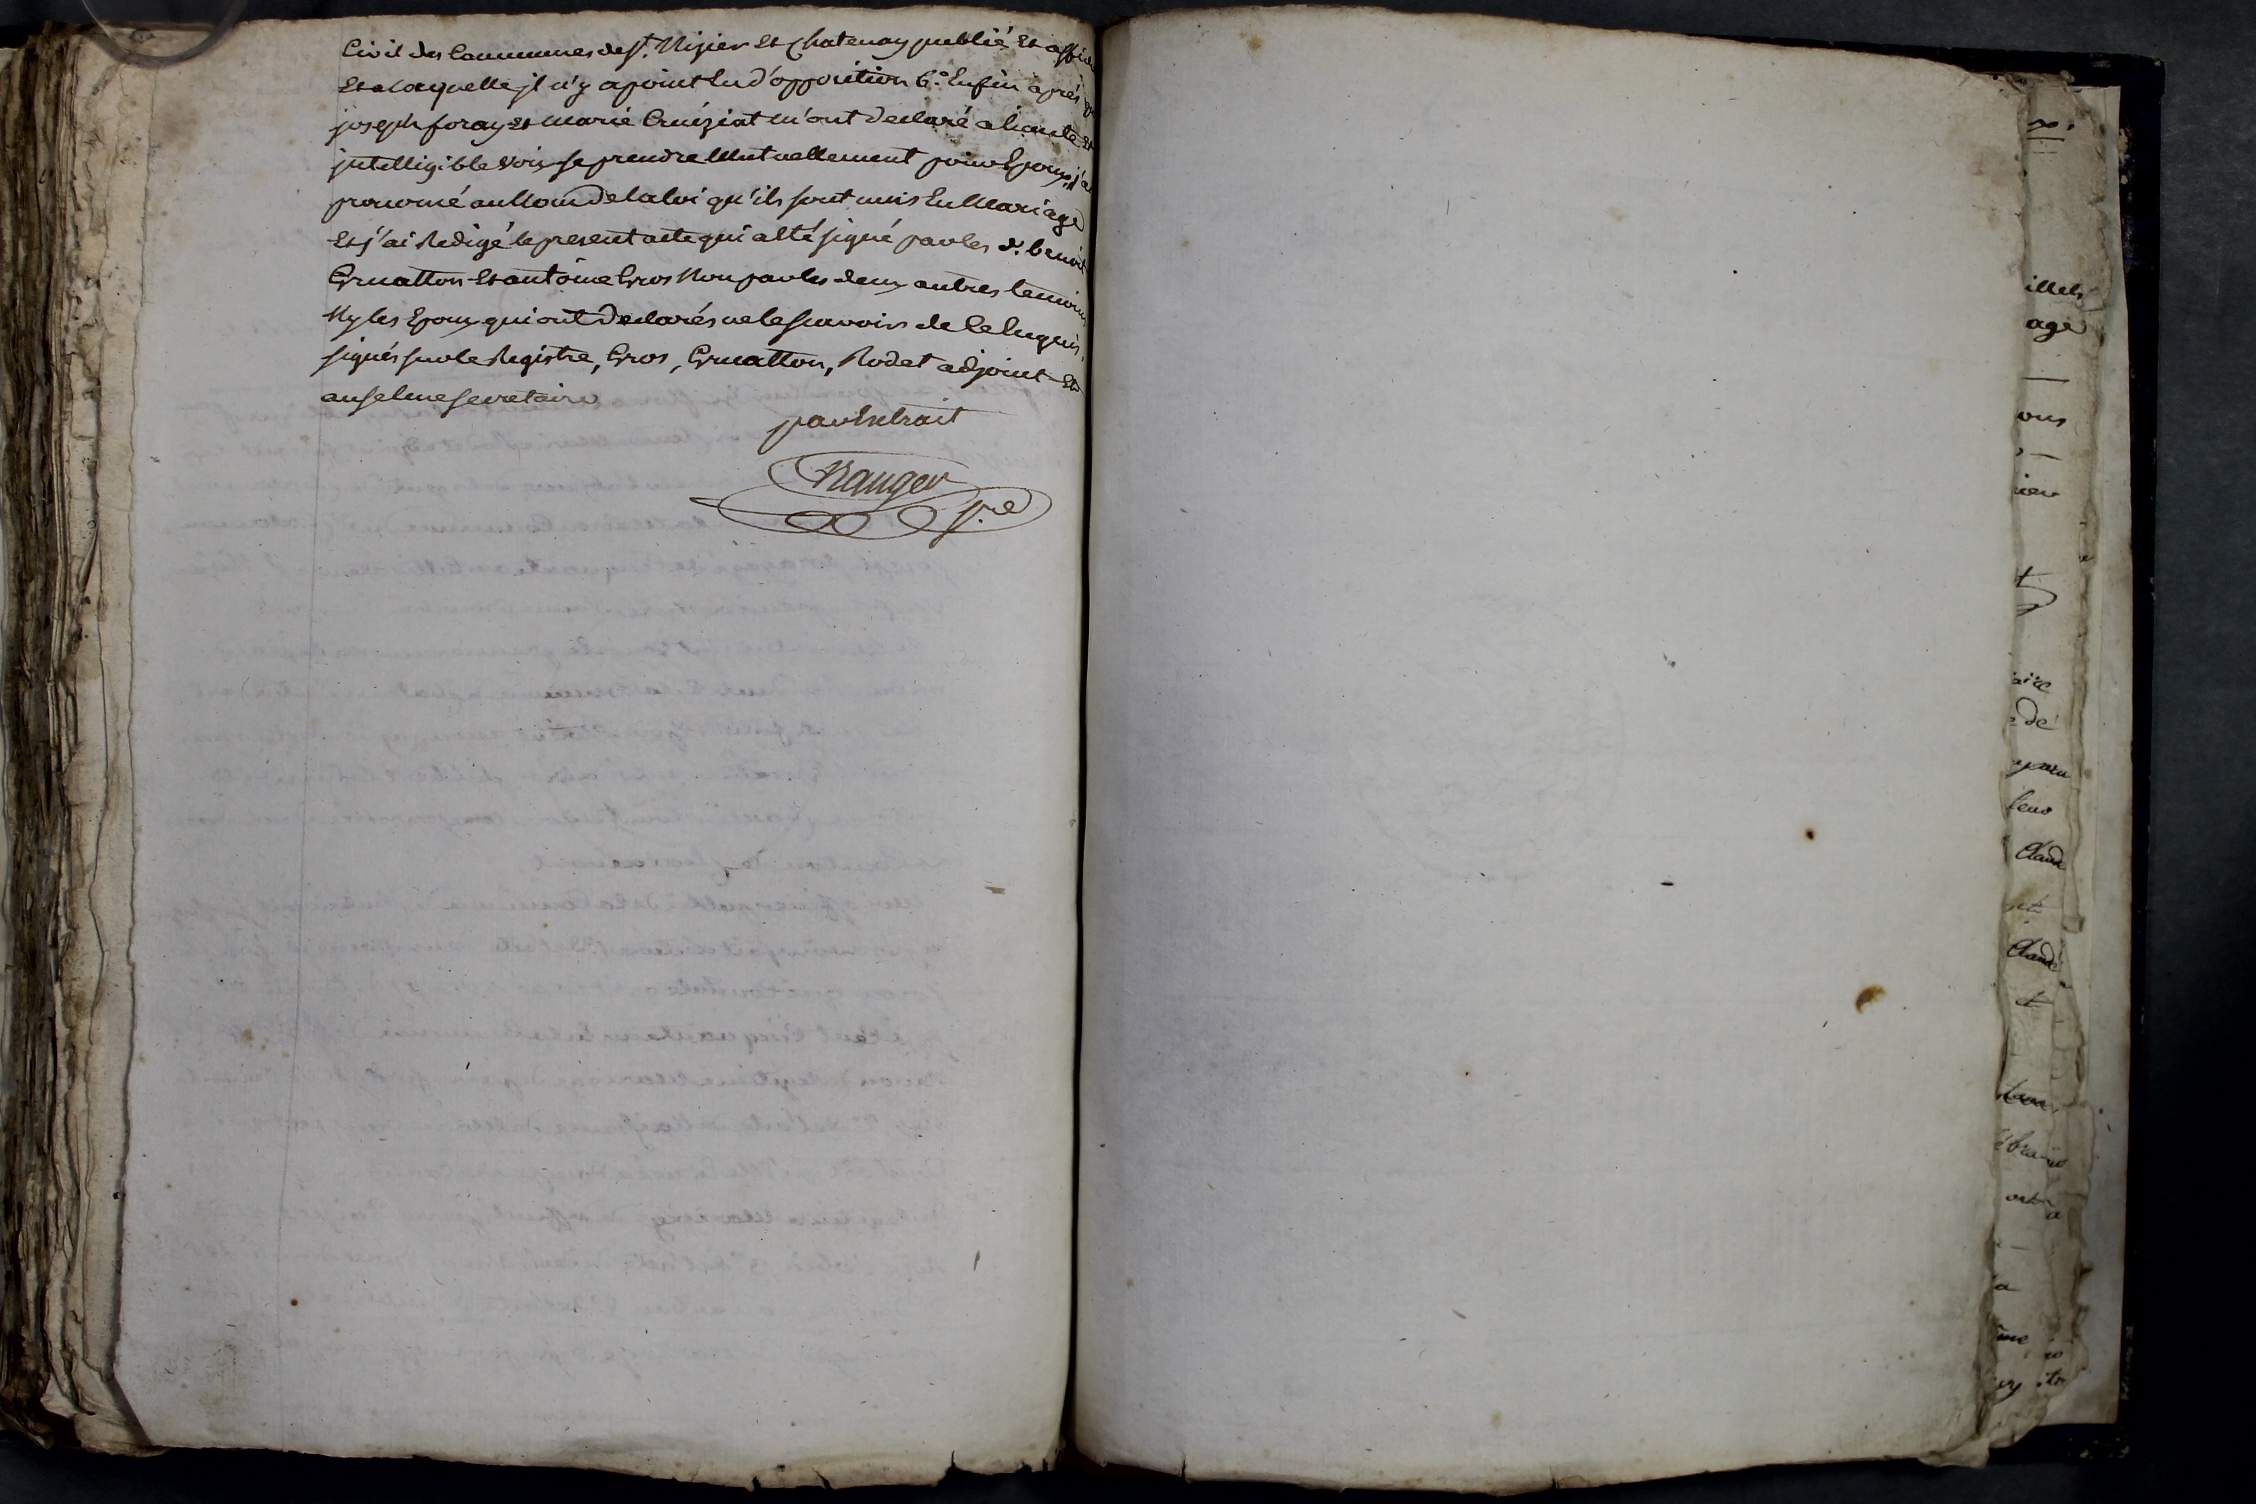 Civil des Communes de St. Nizier Et Chatenay publié Et affiché
Et a laquelle jl n'y a point Eu d'opposition 6.° Enfin après que
joseph foray et marie Cruiziat m'ont declaré a haute et
jntelligible voix se prendre Mutuellement pour Epoux, j'ai
prononcé au Nom de la loi qu'ils sont unis En Mariage
Et j'ai Redigé le present acte qui a Eté signé par les d. benoit
Gruatton Et antoine Gros Non par les deux autres temoins
Ny les Epoux qui ont declarés ne le scavoir de ce Enquis,
signés sur le Registre, Gros, Gruatton, Rodet adjoint Et
anselme secretaire
par Extrait
Rauger
illets
age
ons
ien
de
leur
Claude
Claude